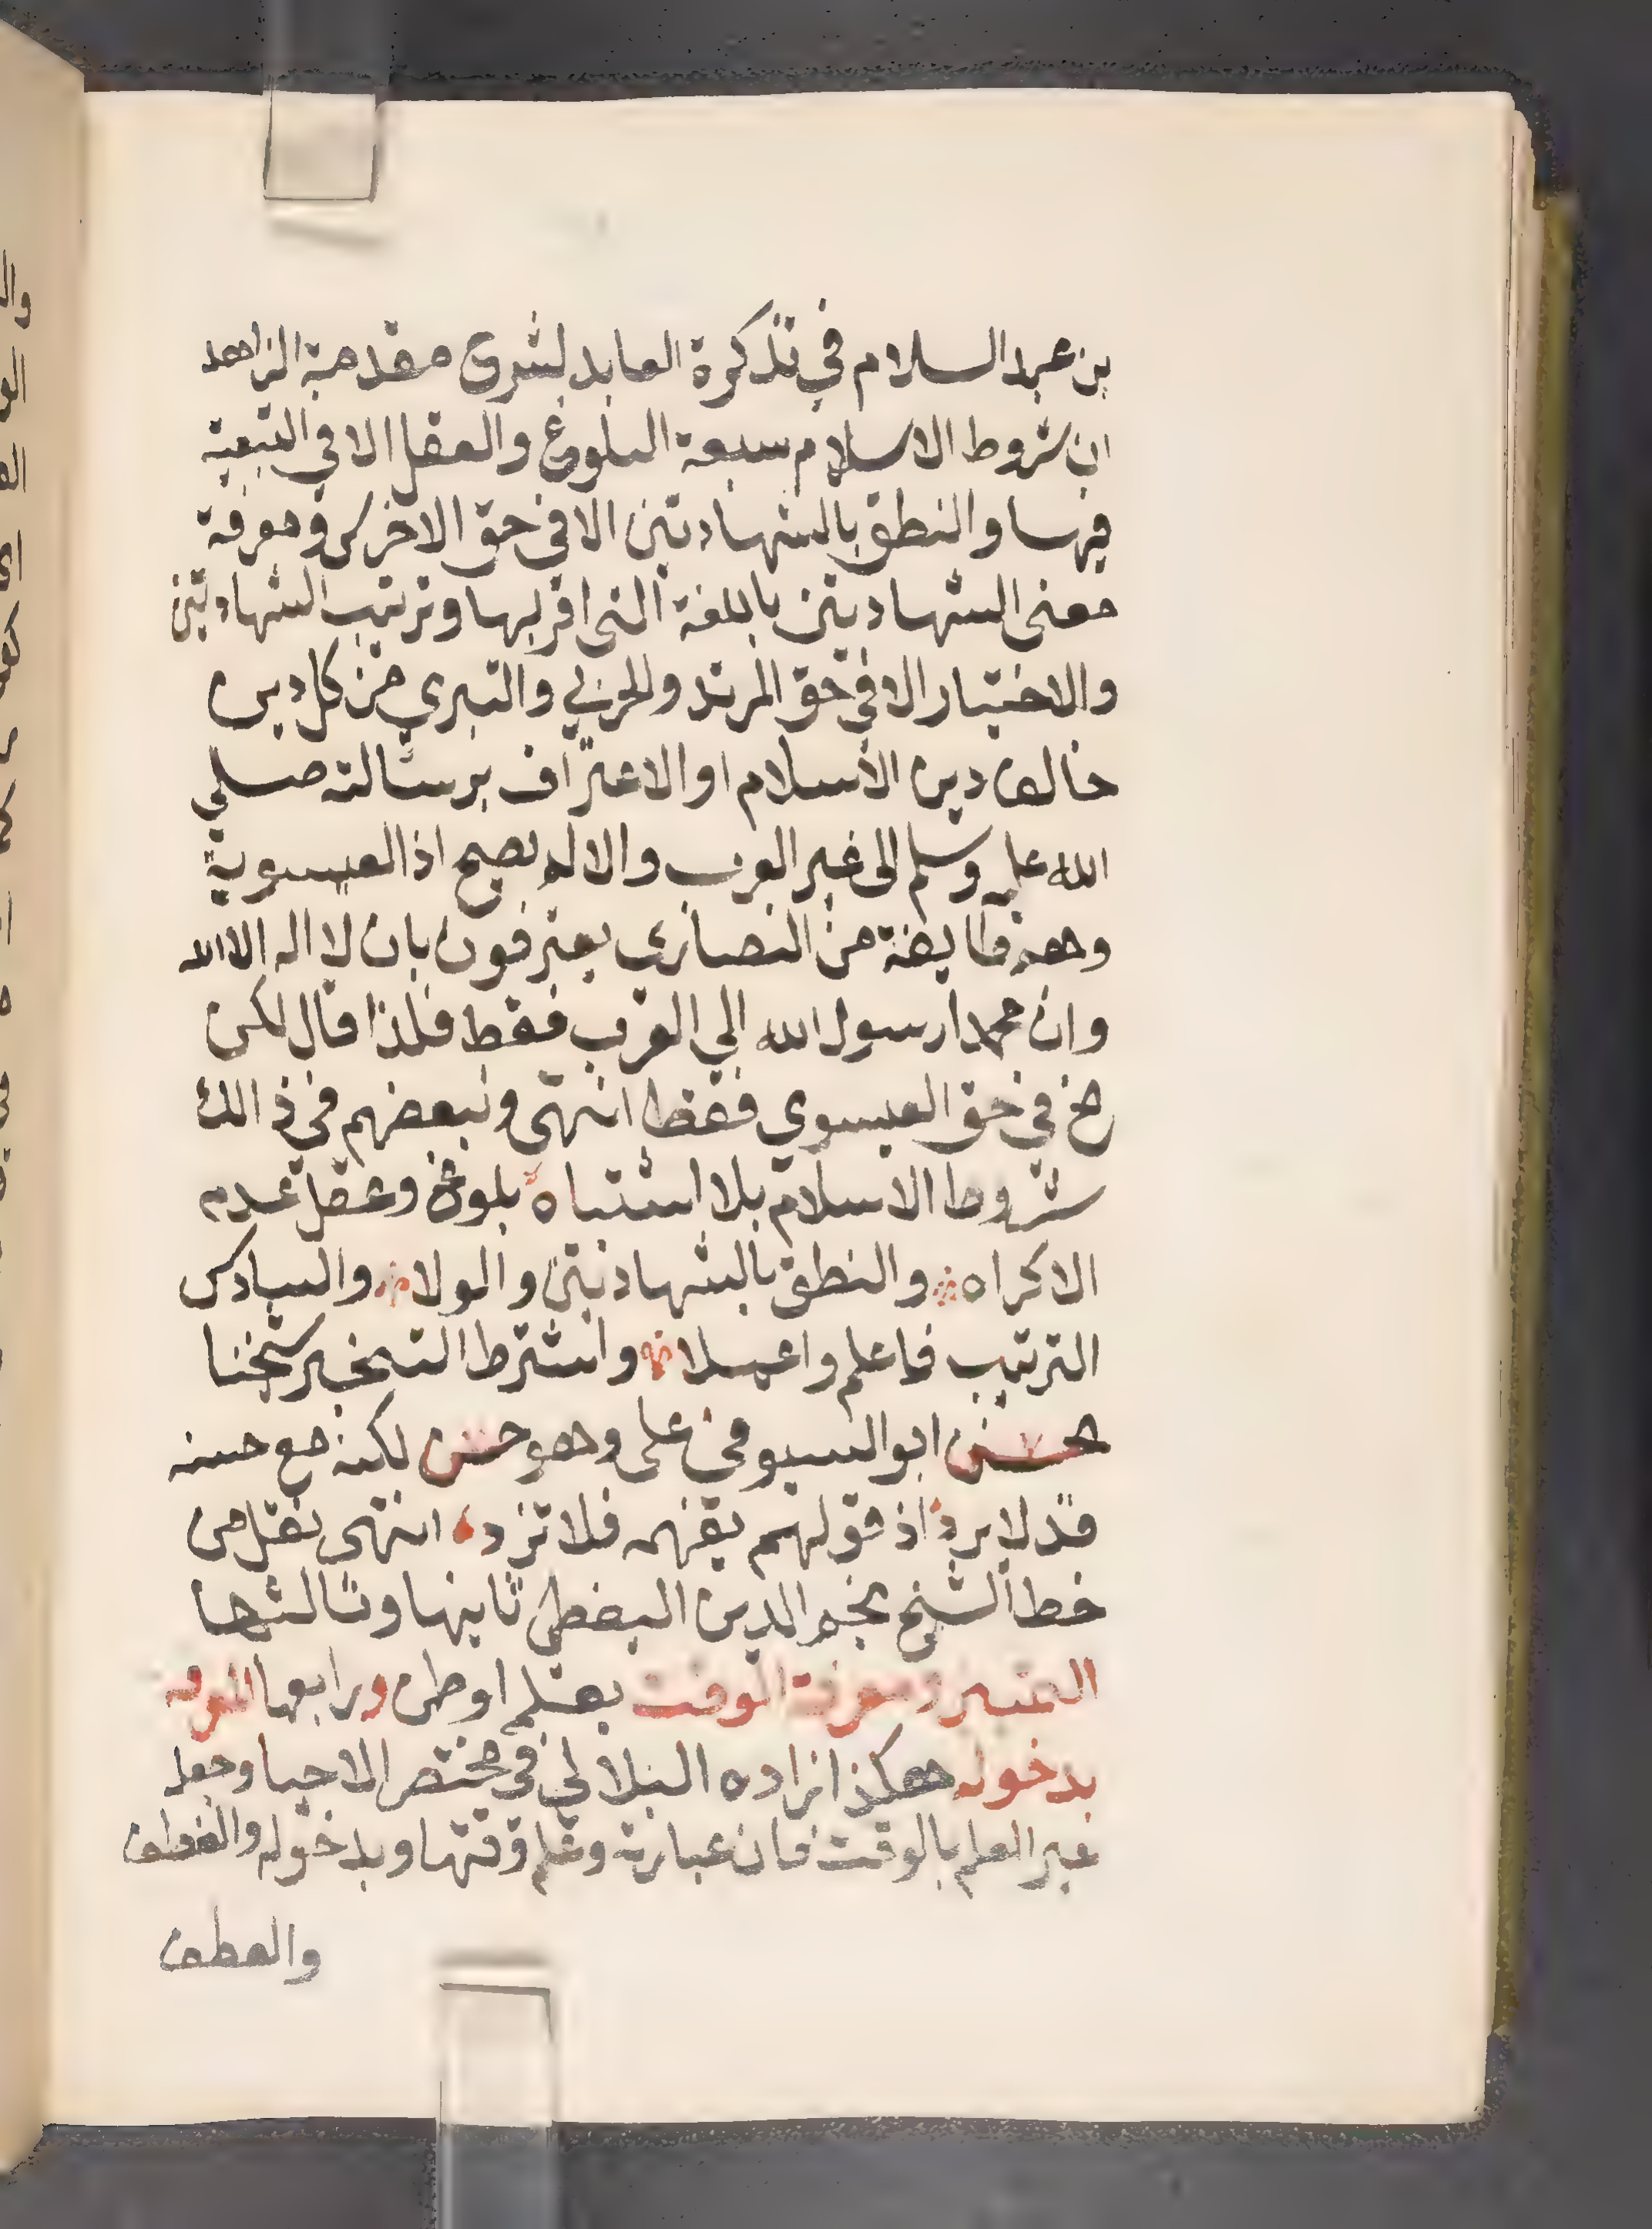 بن عبد السلام في تذكرة العابد لشرح مقدمة الزاهد
ان شروط الاسلام سبعة البلوغ والعقل الا في التبعية
فيها والنطق بالشهادتين الا في حق الاخرس ومعرفة
معنى الشهادتين باللغة التي اقر بها وترتيب الشهادتين
والاختيار الا في حق المرتد والحربي والتبري من كل دين
خالف دين الاسلام او الاعتراف برسالته صلي
الله عليه وسلم الى غير العرب والا لم يصح اذ العيسوية
وهم طايفة من النصاري يعترفون بان لا اله الا الله
وان محمدا رسول الله الي العرب فقط فلذا قال لكن
في حق العيسوي فقط انتهى ولبعضهم في ذالك
شروط الاسلام بلا اشتباه بلوغ وعقل عدم
الاكراه والنطق بالشهادتين والولا والسادس
الترتيب فاعلم واعملا واشترط التخير شيخنا
حسن ابو السيوفي علي وهو حسن لكنه مع حسنه
قد لا يرد اذ قولهم يفهمه فلا تزد انتهى نقل من
خط الشيخ نجم الدين الغيطي ثانيها وثالثها
التميز ومعرفة الوقت بعلم او ظن ورابعها
بدخوله هكذا زاده البلالي في مختصر الاحيا وجعله
غير العلم بالوقت فان عبارته وعلم وقتها وبدخوله والعطف
والعطف